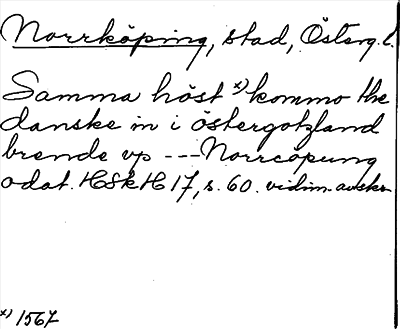 Norrköping, stad, Österg.l.
Samma höst x) kommo the
danske in i östergotzland
brende vp --- Norrcöpung
odat. HSkH 17, s. 60. vidim. avskr.
x) 1567